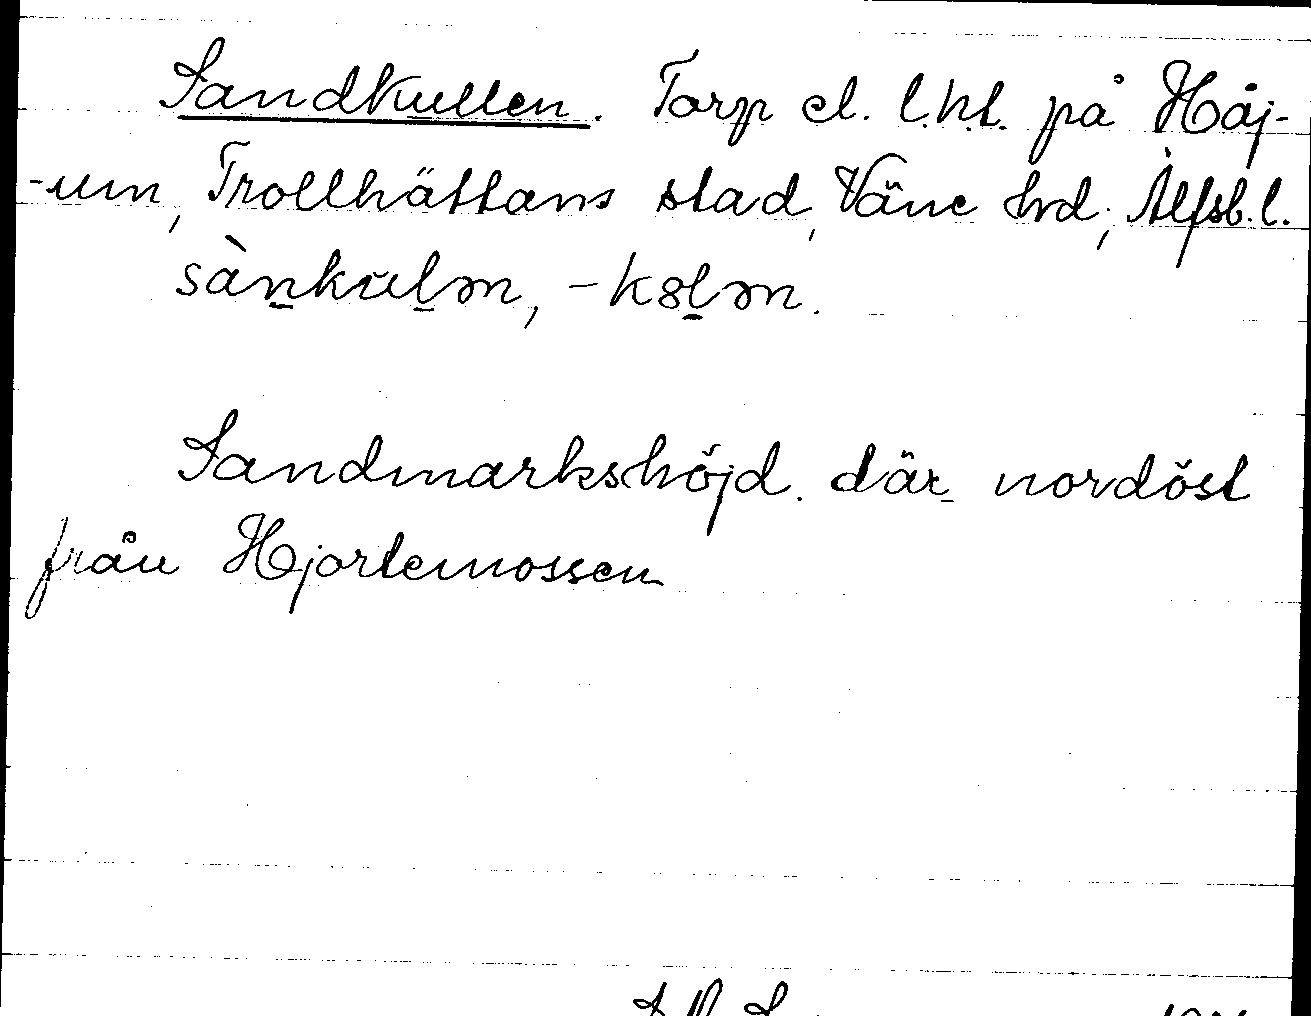 Sandkullen. Torp el. l.h.t. på Håj-
-um, Trollhättans stad, Väne hrd, Älfsb. l.
sànkulm, -k8lm.
Sandmarkshöjd. där nordöst
från Hjortemossen